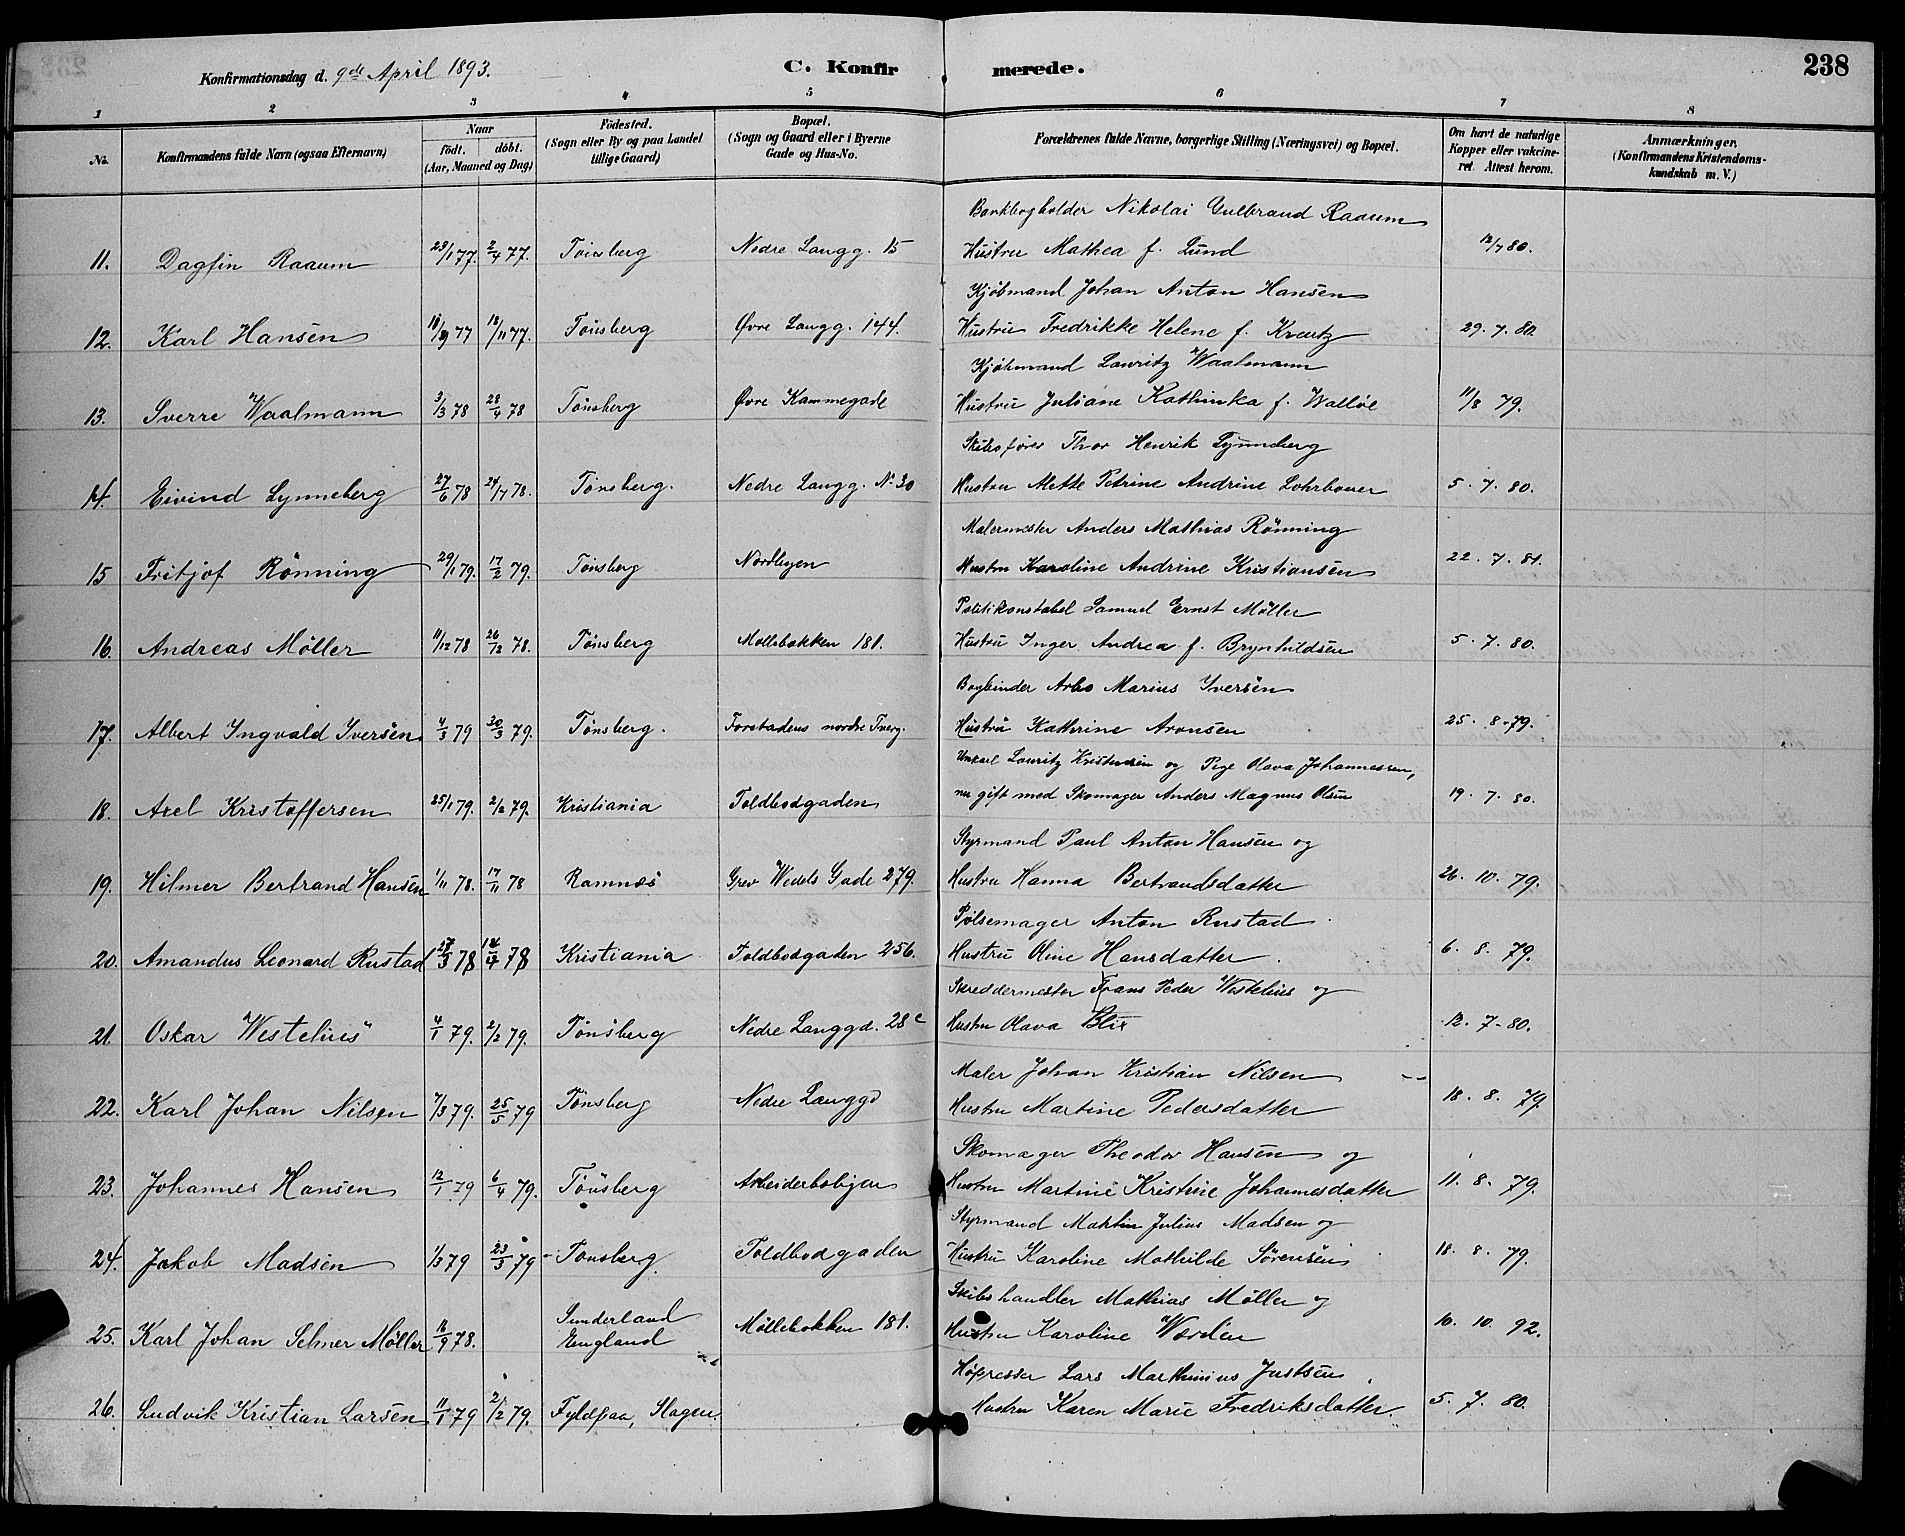 Konfirmationsdag d. 9de April 1893.
C. Konfirmerede.
238
1 2 3 4 5 6 7 8
No.
Konfirmandens fulde Navn (ogsaa Efternavn)
Naar
födt. döbt.
(Aar, Maaned og Dag)
Födested.
(Sogn eller By og paa Landet
tillige Gaard)
Bopæl.
(Sogn og Gaard eller i Byerne
Gade og Hus-No.
Forældrenes fulde Navne, borgerlige Stilling (Næringsvei) og Bopæl.
Om havt de naturlige
Kopper eller vakcine-
ret. Attest herom.
Anmærkninger.
(Konfirmandens Kristendoms-
kundskab m. V.)
Bankbogholder Nikolai Gulbrand Raaum
11. Dagfin Raaum 23/1 77. 2/4 77. Tönsberg Nedre Langg. 15 Hustru Mathea f. Lund 12/7 80.
Kjöbmand Johan Anton Hansen
12. Karl Hansen 18/9 77 18/11 77. Tönsberg Øvre Langg. 144. Hustru Fredrikke Helene f. Kreutz 29. 7. 80.
Kjöbmand Lauritz Waalmann
13. Sverre Waalmann 3/3 78 28/4 78 Tönsberg Øvre Kammegade Hustru Juliane Kathinka f. Wallöe 11/8 79.
Skibsförer Thor Henrik Lynneberg
14. Eivind Lynneberg 27/6 78 24/7 78. Tönsberg. Nedre Langg. No 30 Hustru Mette Petrine Andrine Lohrbauer 5. 7. 80.
Malermester Anders Mathias Rönning
15 Fritjof Rönning 29/1 79. 17/2 79. Tönsberg Nordbyen Hustru Karoline Andrine Kristiansen 22. 7. 81.
Politikonstabel Samuel Ernst Möller
16. Andreas Möller 11/12 78 26/12 78. Tönsberg Möllebakken 181. Hustru Inger Andrea f. Brynhildsen 5. 7. 80.
Bogbinder Arbo Marius Iversen
17. Albert Ingvald Iversen 4/3 79 30/3 79. Tönsberg. Forstadens nordre Tverg. Hustru Kathrine Aronsen 25. 8. 79.
Unkarl Lauritz Kristensen og Pige Olava Johannessen,
18. Axel Kristoffersen 25/1 79. 2/2 79. Kristiania Toldbodgaden nu gift med Skomager Anders Magnus Olsen 19. 7. 80.
Styrmand Paul Anton Hansen og
19. Hilmer Bertrand Hansen 1/11 78. 17/11 78 Ramnæs Grev Wedels Gade 279. Hustru Hanna Bertrandsdatter 26. 10. 79.
Pölsemager Anton Rustad
20. Amandus Leonard Rustad 27/3 78 14/4 78 Kristiania Toldbodgaden 256. Hustru Oline Hansdatter 6. 8. 79.
Skreddermester Frans Peder Westelius og
21. Oskar Westelius 4/1 79. 2/2 79. Tönsberg Nedre Langgd. 28c Hustru Olava Blix 12. 7. 80.
Maler Johan Kristian Nilsen
22. Karl Johan Nilsen 7/3 79. 25/5 79 Tönsberg Nedre Langgd Hustru Martine Pedersdatter 18. 8. 79.
Skomager Theodor Hansen og
23. Johannes Hansen 12/1 79 6/4 79. Tönsberg Arbeiderboligen Hustru Martine Kristine Johannesdatter 11. 8. 79.
Styrmand Martin Julius Madsen og
24. Jakob Madsen 1/3 79 23/3 79 Tönsberg. Toldbodgaden Hustru Karoline Mathilde Sörensen 18. 8. 79.
Skibshandler Mathias Möller og
25. Karl Johan Selmer Möller 16/9 78. Sunderland England Möllebakken 181. Hustru Karoline Worden 10. 10. 92.
Höpresser Lars Marthinius Justsen
26. Ludvik Kristian Larsen 11/1 79 2/2 79. Fyldpaa, Slagen. Hustru Karen Marie Fredriksdatter. 5. 7. 80.